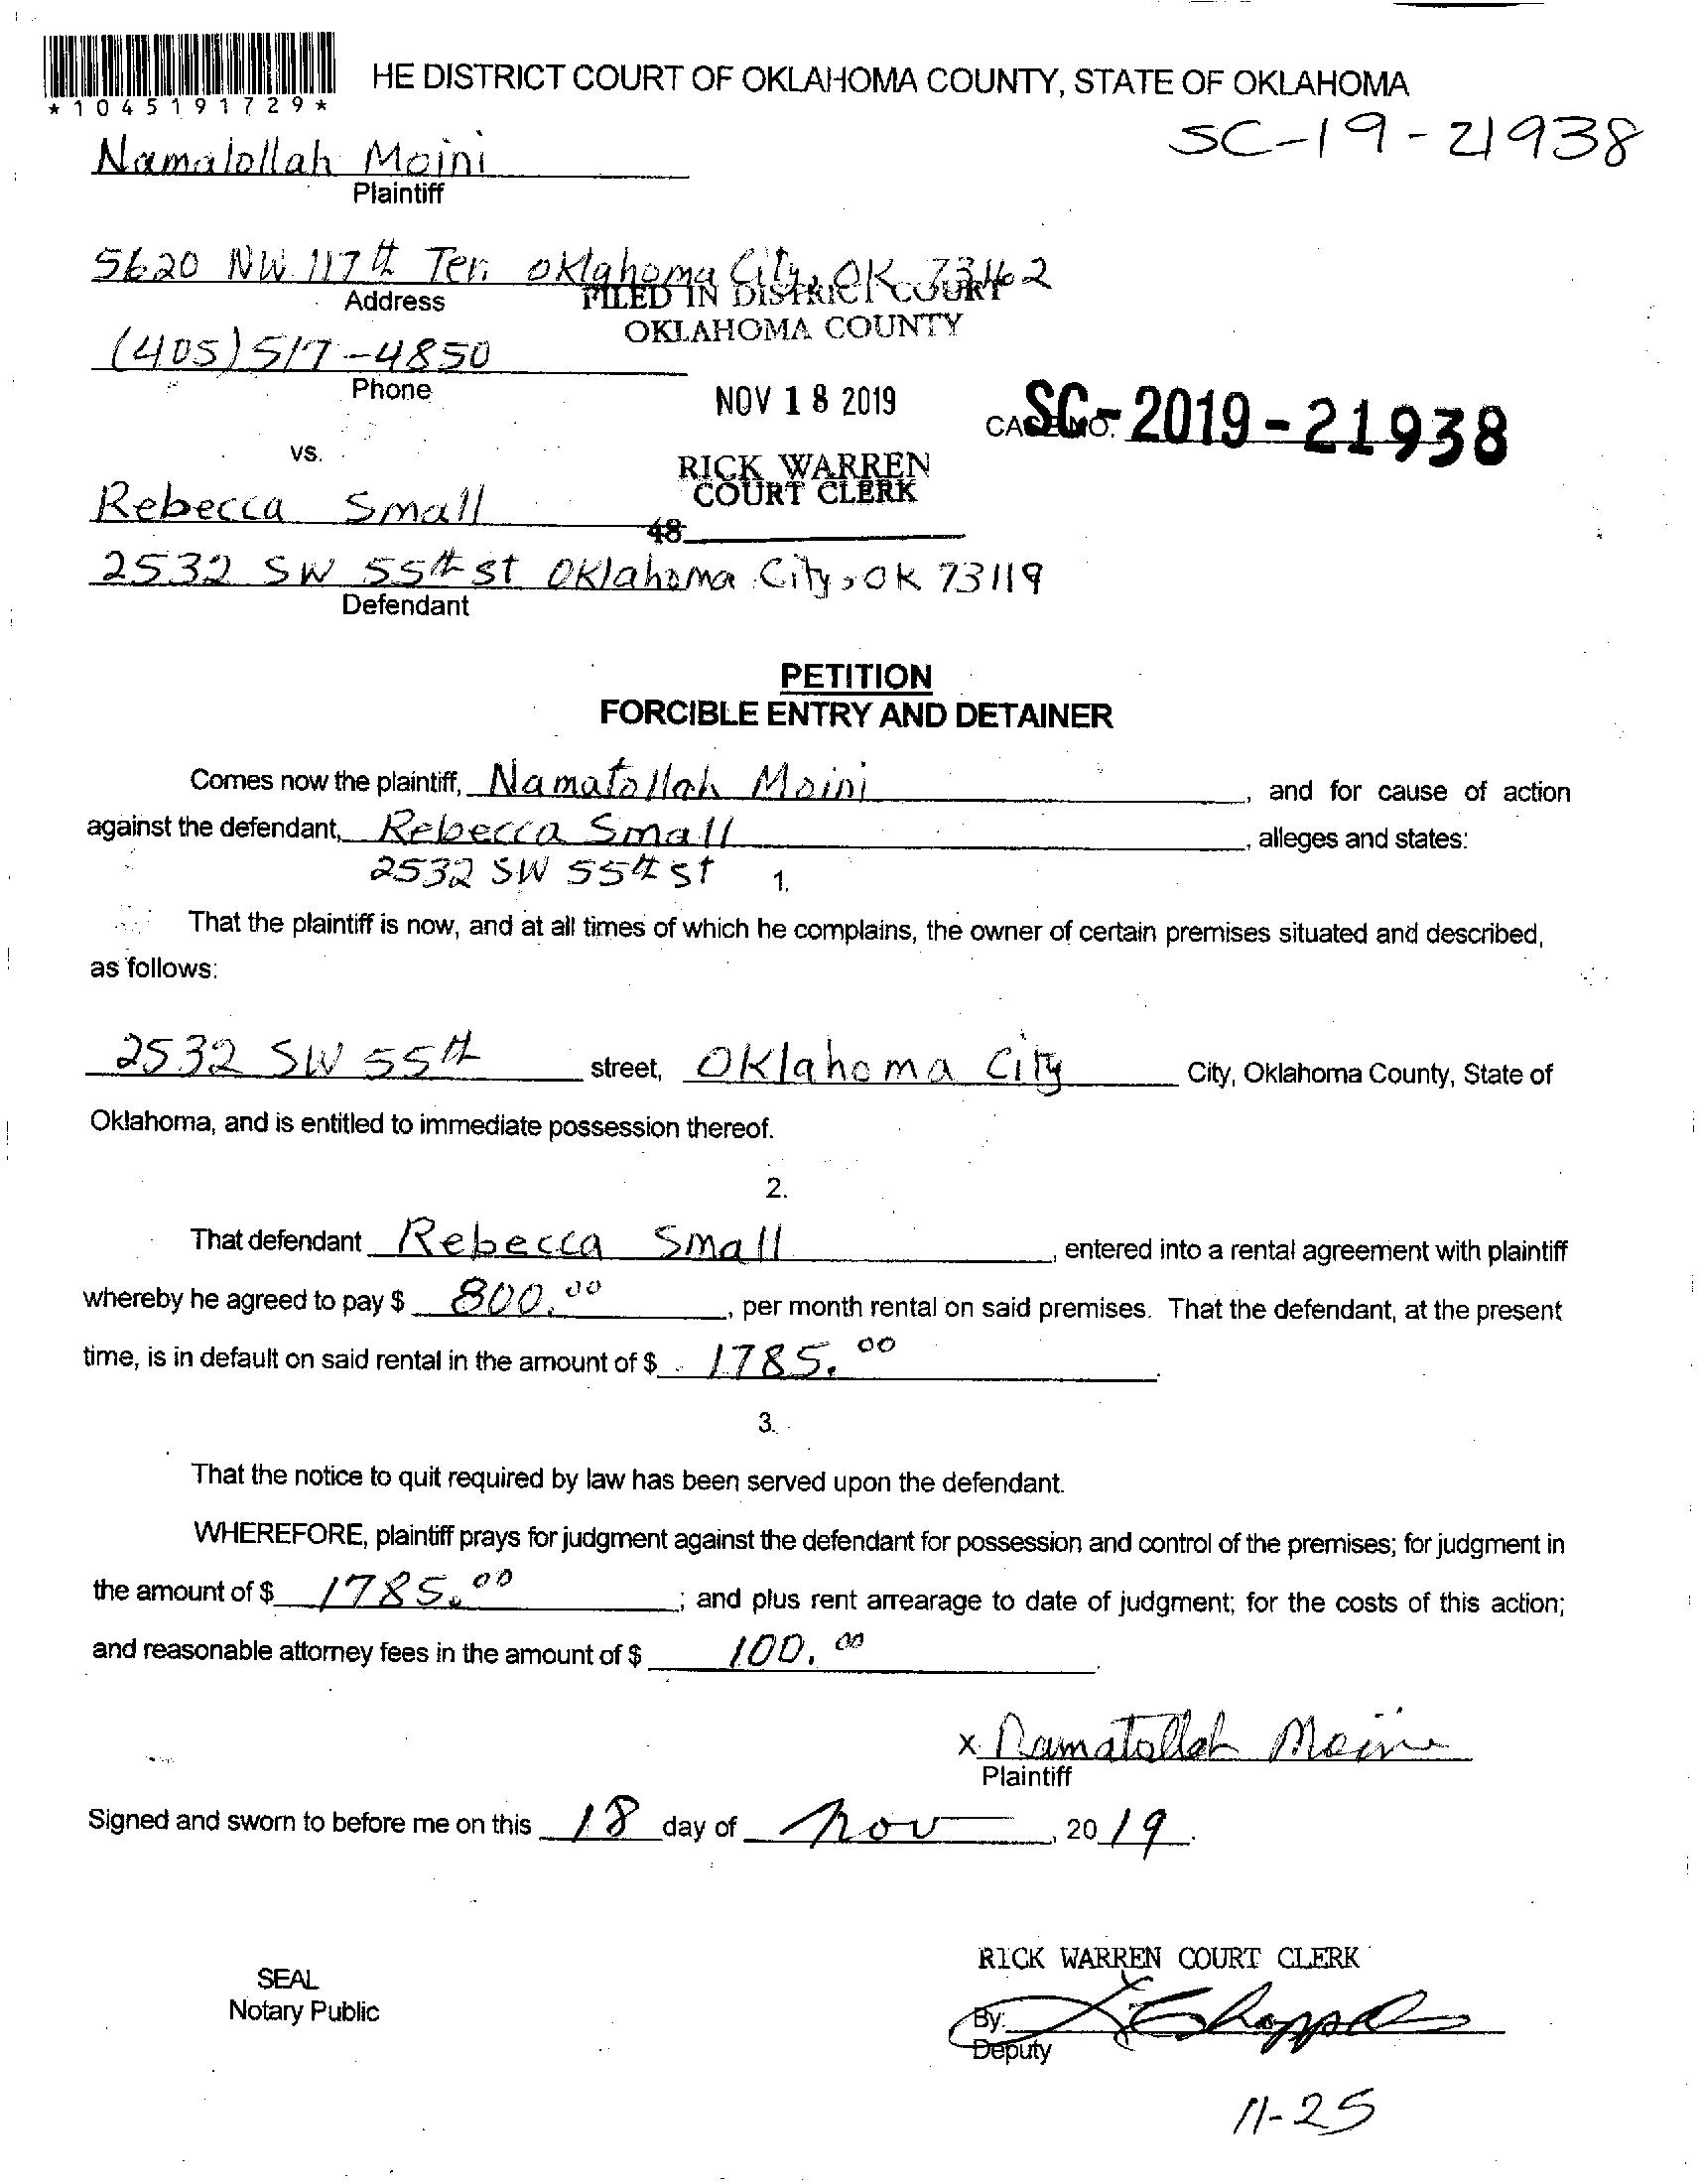 *1045191729*
HE DISTRICT COURT OF OKLAHOMA COUNTY, STATE OF OKLAHOMA
SC-19-21938
Namatollah Moini
Plaintiff
5620 NW 117th Ter. Oklahoma City, OK 73162
Address
FILED IN DISTRICT COURT
OKLAHOMA COUNTY
(405) 517-4850
Phone
NOV 18 2019
CASE NO. SC-2019-21938
vs.
RICK WARREN
COURT CLERK
Rebecca Small
48
2532 SW 55th st Oklahoma City, OK 73119
Defendant
PETITION
FORCIBLE ENTRY AND DETAINER
Comes now the plaintiff, Namatollah Moini, and for cause of action
against the defendant, Rebecca Small, alleges and states:
2532 SW 55th st
1.
That the plaintiff is now, and at all times of which he complains, the owner of certain premises situated and described,
as follows:
2532 SW 55th street, Oklahoma City City, Oklahoma County, State of
Oklahoma, and is entitled to immediate possession thereof.
2.
That defendant Rebecca Small, entered into a rental agreement with plaintiff
whereby he agreed to pay $ 800.00, per month rental on said premises. That the defendant, at the present
time, is in default on said rental in the amount of $ 1785.00.
3.
That the notice to quit required by law has been served upon the defendant.
WHEREFORE, plaintiff prays for judgment against the defendant for possession and control of the premises; for judgment in
the amount of $ 1785.00; and plus rent arrearage to date of judgment; for the costs of this action;
and reasonable attorney fees in the amount of $ 100.00.
x Namatollah Moini
Plaintiff
Signed and sworn to before me on this 18 day of Nov, 2019.
RICK WARREN COURT CLERK
SEAL
Notary Public
By:
Deputy
11-25